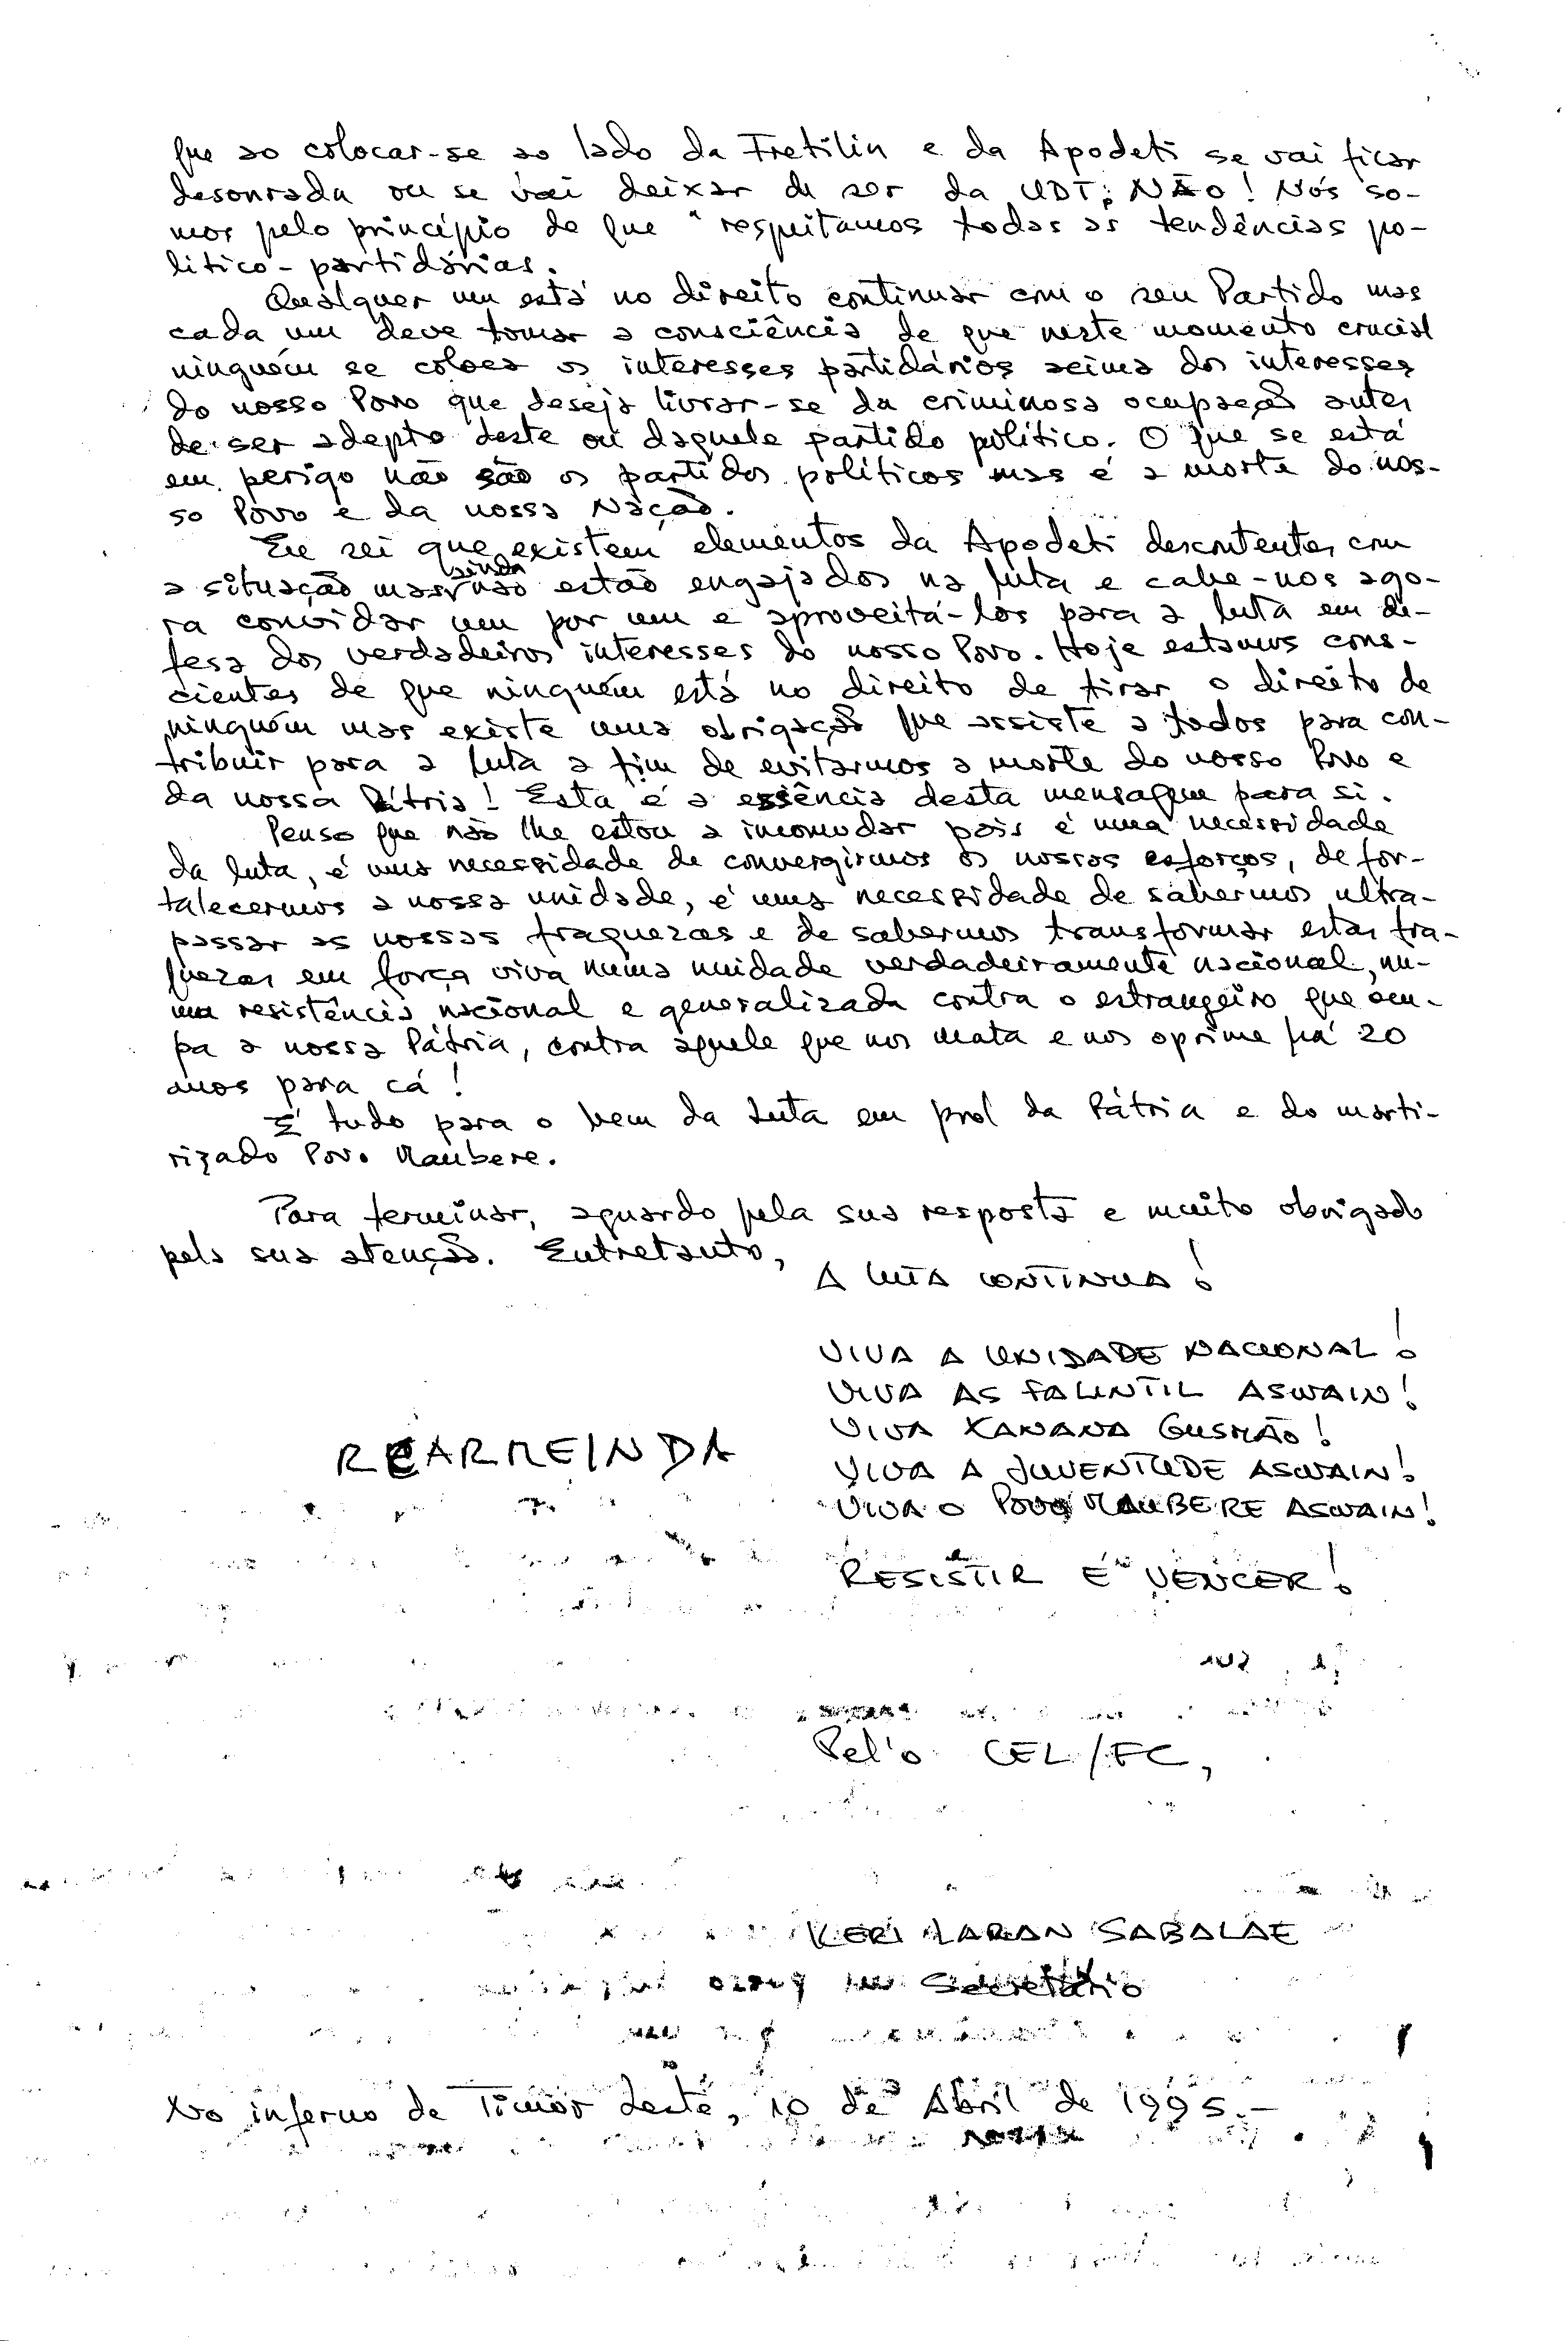 que ao colocar-se ao lado da Fretilin e da Apodeti se vai ficar
desonrada ou se vai deixar de ser da UDT; NÃO! Nós so-
mos pelo princípio de que "respeitamos todas as tendências po-
lítico-partidárias.
Qualquer um está no direito continuar com o seu Partido mas
cada um deve tomar a consciência de que neste momento crucial
ninguém se coloca os interesses partidários acima dos interesses
do nosso Povo que deseja livrar-se da criminosa ocupação antes
de ser adepto deste ou daquele partido político. O que se está
em perigo não são os partidos políticos mas é a morte do nos-
so Povo e da nossa Nação.
Eu sei que existem elementos da Apodeti descontentes com
a situação mas ainda não estão engajados na luta e cabe-nos ago-
ra convidar um por um e aproveitá-los para a luta em de-
fesa dos verdadeiros interesses do nosso Povo. Hoje estamos cons-
cientes de que ninguém está no direito de tirar o direito de
ninguém mas existe uma obrigação que assiste a todos para con-
tribuir para a luta a fim de evitarmos a morte do nosso Povo e
da nossa Pátria! Esta é a essência desta mensagem para si.
Penso que não lhe estou a incomodar pois é uma necessidade
da luta, é uma necessidade de convergirmos os nossos esforços, de for-
talecermos a nossa unidade, é uma necessidade de sabermos ultra-
passar as nossas fraquezas e de sabermos transformar estas fra-
quezas em força viva numa unidade verdadeiramente nacional, nu-
ma resistência nacional e generalizada contra o estrangeiro que ocu-
pa a nossa Pátria, contra aquele que nos mata e nos oprime há 20
anos para cá!
É tudo para o bem da Luta em prol da Pátria e do marti-
rizado Povo Maubere.
Para terminar, aguardo pela sua resposta e muito obrigado
pela sua atenção. Entretanto,
A LUTA CONTINUA!
VIVA A UNIDADE NACIONAL!
VIVA AS FALINTIL ASWAIN!
VIVA XANANA GUSMÃO!
REARMEINDA
VIVA A JUVENTUDE ASWAIN!
VIVA O POVO MAUBERE ASWAIN!
RESISTIR É VENCER!
Pel'o CEL/FC,
KERI LARAN SABALAE
Secretário
No inferno de Timor Leste, 10 de Abril de 1995.-